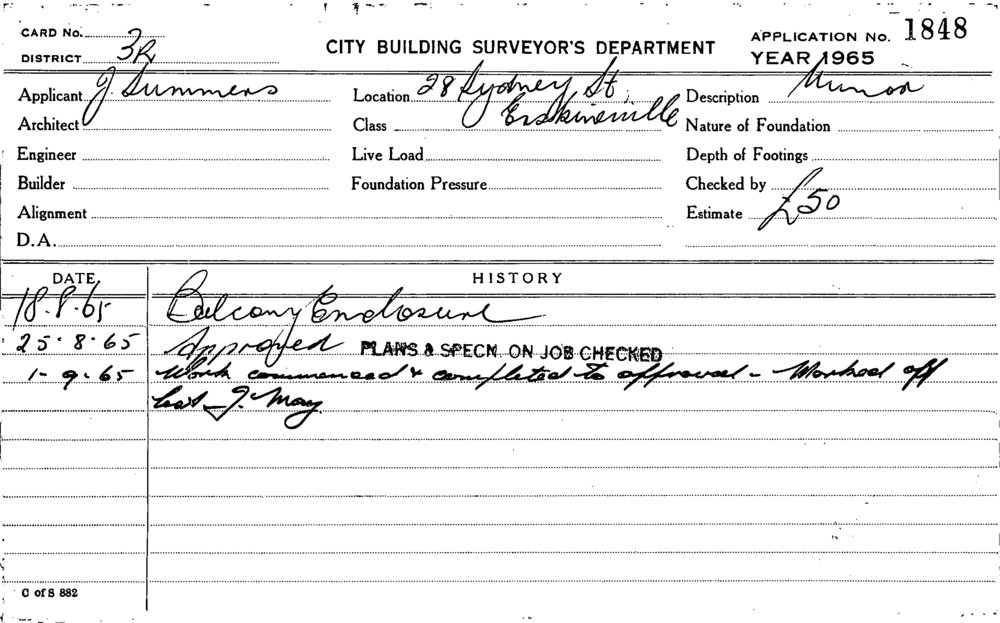 CARD No.
DISTRICT 3R
CITY BUILDING SURVEYOR'S DEPARTMENT
APPLICATION No. 1848
YEAR 1965
Applicant J. Summers
Location 28 Sydney St,
Erskineville
Description Minor
Architect
Class
Nature of Foundation
Engineer
Live Load
Depth of Footings
Builder
Foundation Pressure
Checked by
Alignment
Estimate £50
D.A.
DATE
HISTORY
18.8.65 Balcony Enclosure
25.8.65 Approved PLANS & SPECN. ON JOB CHECKED
1-9.65 Work commenced & completed to approval - Marked off
list - J. May
C of S 882